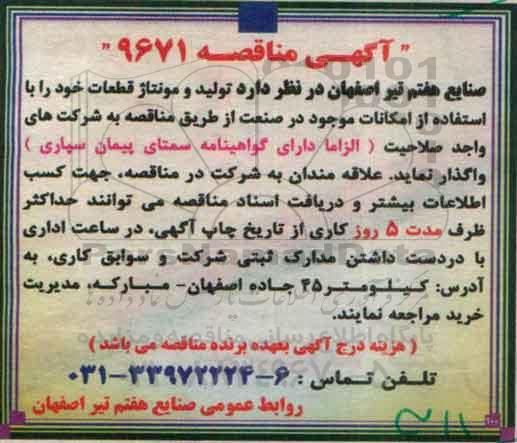 " آگهی مناقصه ۹۶۷۱ "
صنایع هفتم تیر اصفهان در نظر دارد تولید و مونتاژ قطعات خود را با
استفاده از امکانات موجود در صنعت از طریق مناقصه به شرکت های
واجد صلاحیت ( الزاما دارای گواهینامه سمتای پیمان سپاری )
واگذار نماید. علاقه مندان به شرکت در مناقصه، جهت کسب
اطلاعات بیشتر و دریافت اسناد مناقصه می توانند حداکثر
ظرف مدت ۵ روز کاری از تاریخ چاپ آگهی، در ساعت اداری
با دردست داشتن مدارک ثبتی شرکت و سوابق کاری، به
آدرس: کیلومتر ۴۵ جاده اصفهان- مبارکه، مدیریت
خرید مراجعه نمایند.
( هزینه درج آگهی بعهده برنده مناقصه می باشد )
تلفن تماس : ۶-۳۳۹۷۲۲۲۴-۰۳۱
روابط عمومی صنایع هفتم تیر اصفهان